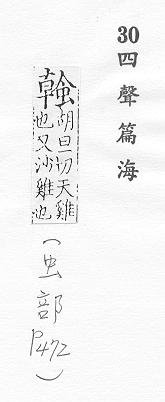 30四聲篇海
螒
胡旦切天雞
也又沙雞也
(虫部P472)